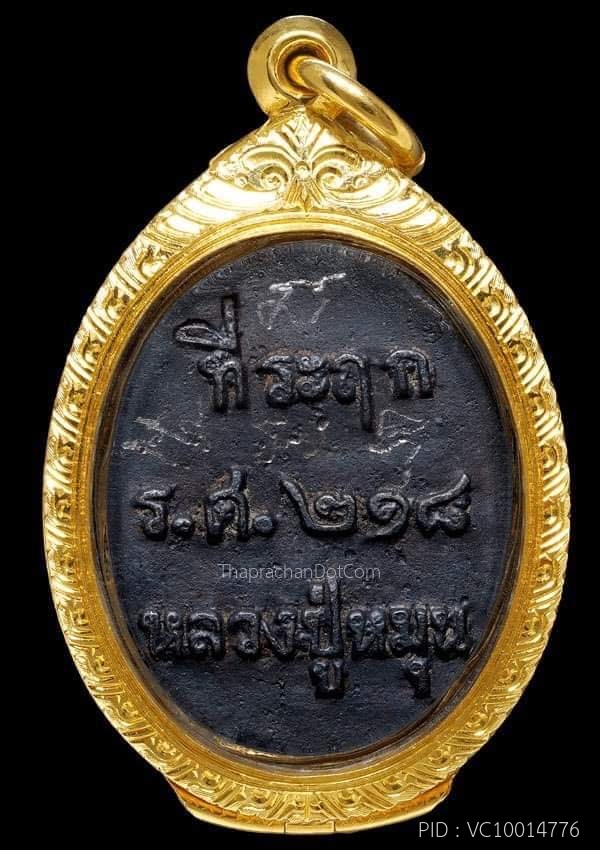 ที่ระฤก
ร.ศ.๒๑๘
ThaprachanDotCom
หลวงปู่หมุน
PID : VC10014776